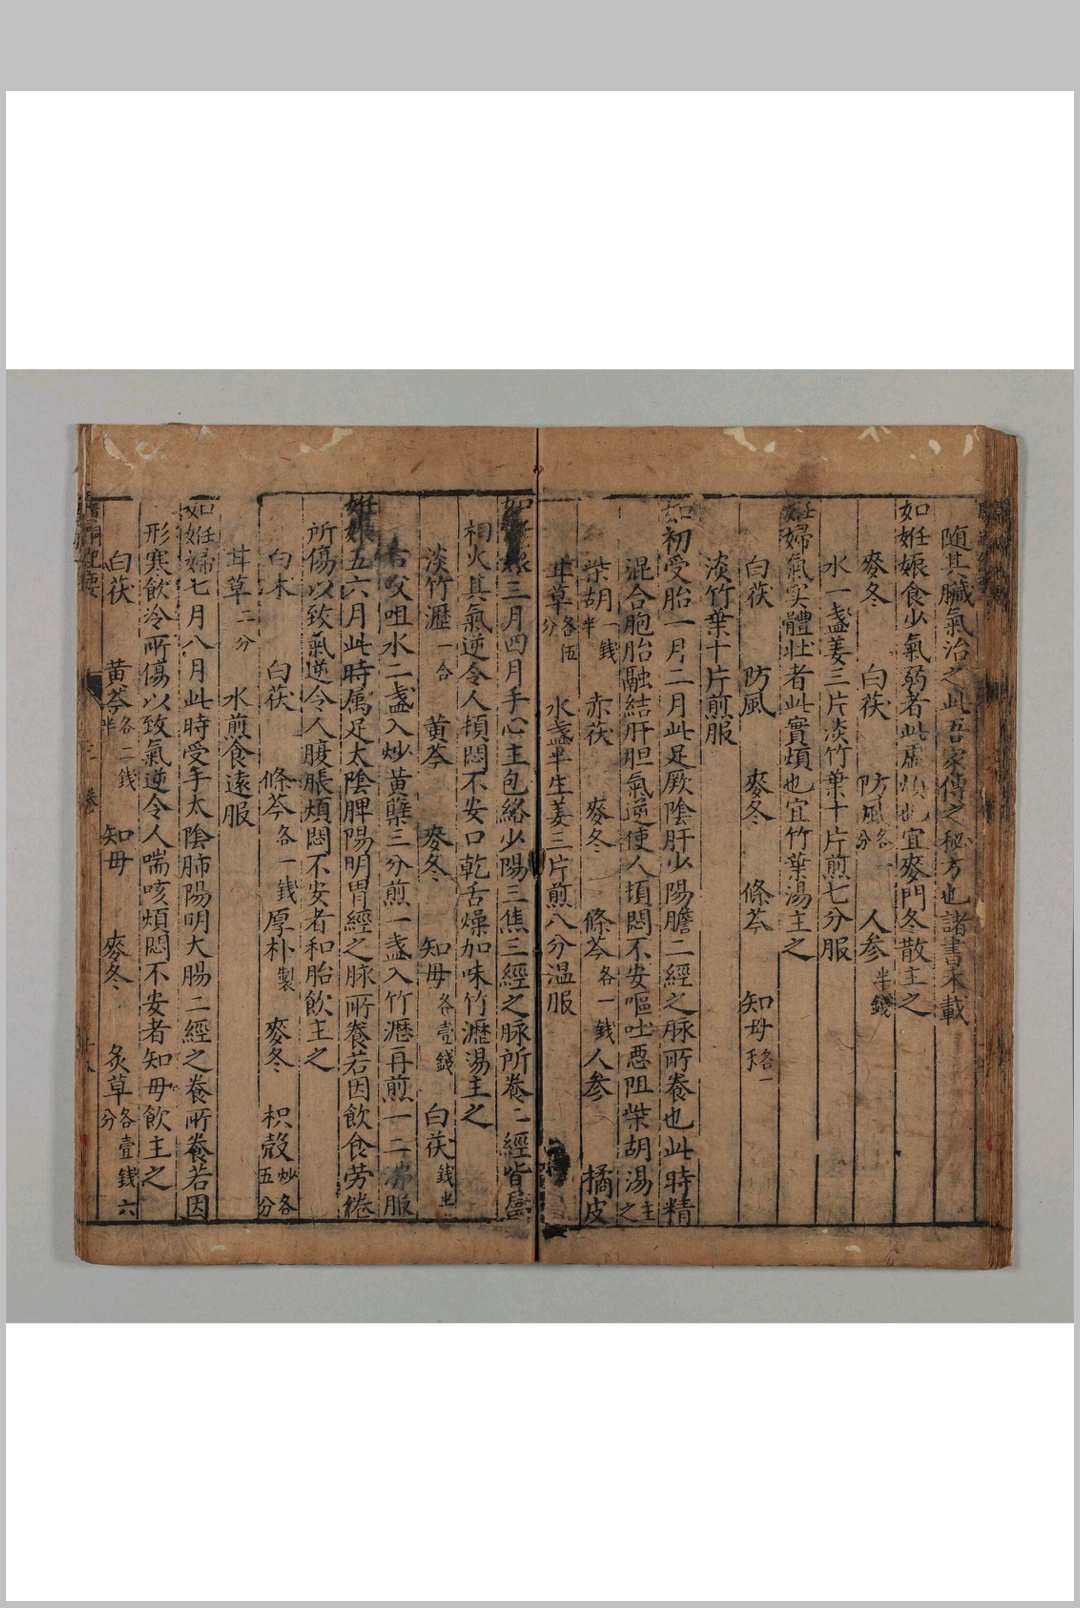 随其臟氣治之此吾家傳之秘方也諸書未載
如妊娠食少氣弱者此虛煩也宜麥門冬散主之
麥冬 白茯 防風各一分 人參半錢
水一盞姜三片淡竹葉十片煎七分服
妊婦氣实體壯者此實煩也宜竹葉湯主之
白茯 防風 麥冬 條芩 知母各一
淡竹葉十片煎服
如初受胎一月二月此是厥陰肝少陽膽二經之脉所養也此時精
混合胞胎融結肝胆氣逆使人煩悶不安嘔吐惡阻柴胡湯主之
柴胡一錢半 赤茯 麥冬 條芩各一錢 人參 橘皮
甘草各伍分 水盞半生姜三片煎八分温服
如妊娠三月四月手心主包絡少陽三焦三經之脉所養二經皆屬
相火其氣逆令人煩悶不安口乾舌燥加味竹瀝湯主之
淡竹瀝一合 黄芩 麥冬 知母各壹錢 白茯錢半
右㕮咀水二盞入炒黄蘗三分煎一盞入竹瀝再煎一二沸服
妊娠五六月此時属足太陰脾陽明胃經之脉所養若因飲食劳倦
所傷以致氣逆令人腹脹煩悶不安者和胎飲主之
白术 白茯 條芩各一錢 厚朴製 麥冬 枳殻炒各五分
甘草二分 水煎食遠服
如妊婦七月八月此時受手太陰肺陽明大腸二經之養所養若因
形寒飲冷所傷以致氣逆令人喘咳煩悶不安者知母飲主之
白茯 黄芩各二錢半 知母 麥冬 炙草各壹錢六分